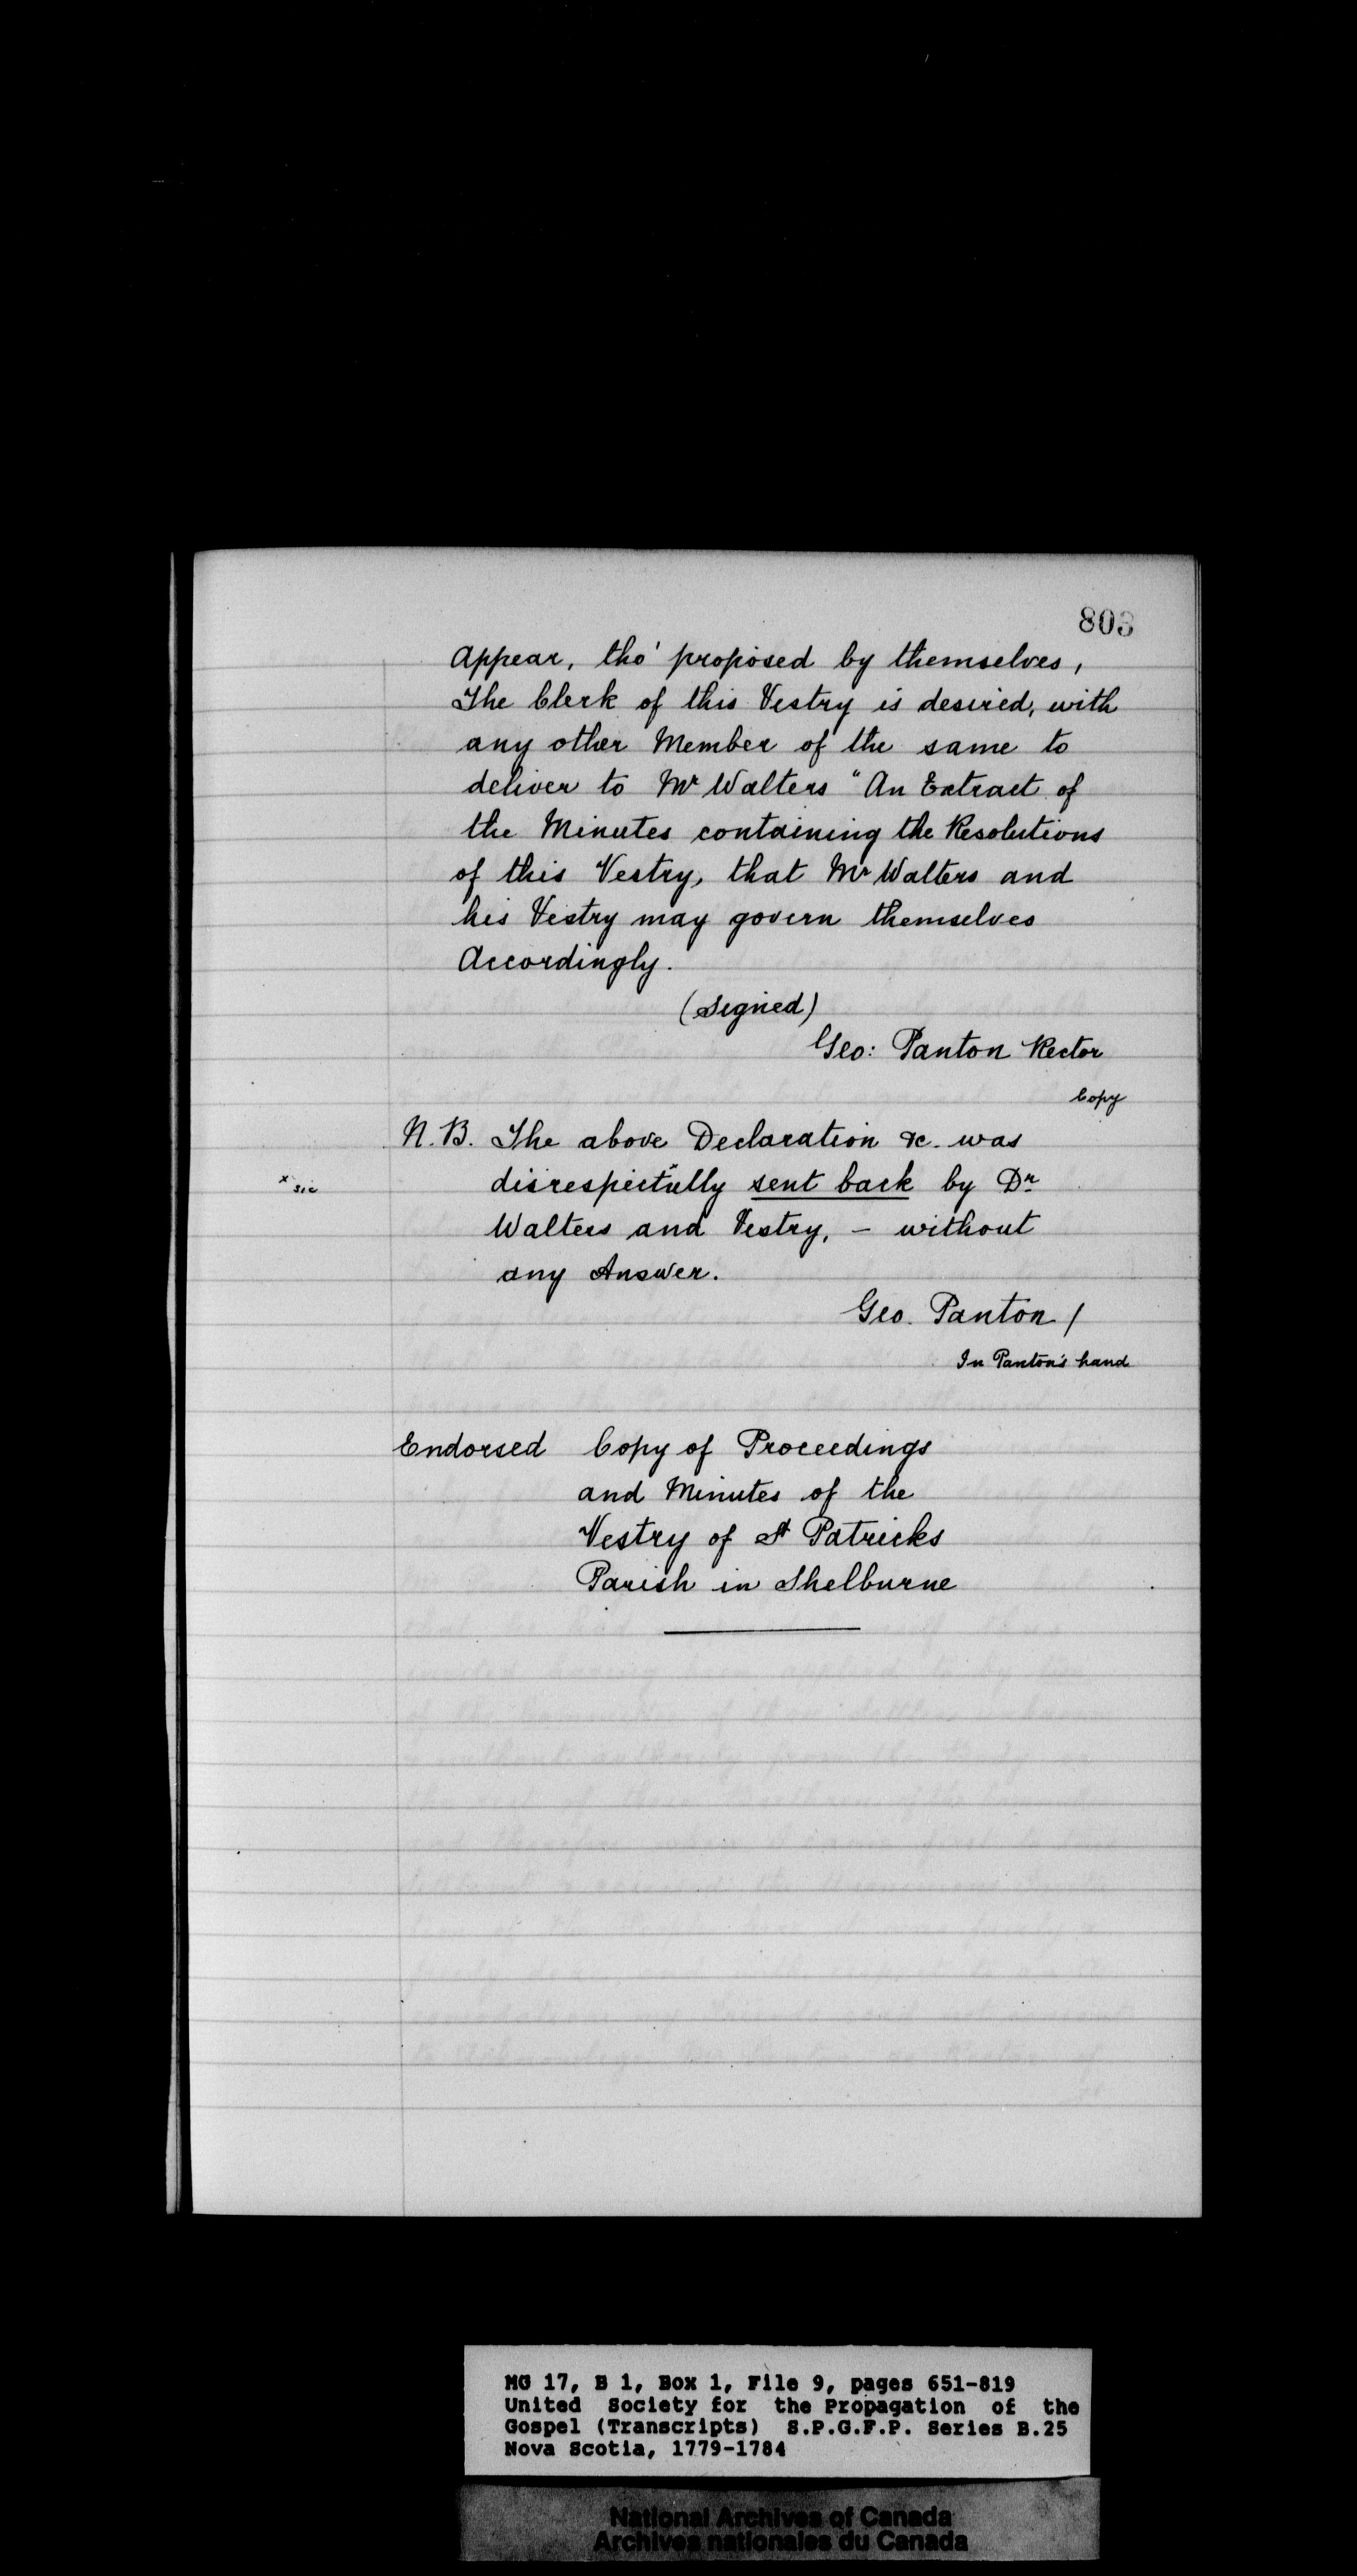 803
Appear, tho' proposed by themselves,
The Clerk of this Vestry is desired, with
any other Member of the same to
deliver to Mr Walters "An Extract of
the Minutes containing the Resolutions
of this Vestry, that Mr Walters and
his Vestry may govern themselves
Accordingly.
(Signed)
Geo: Panton Rector
Copy
N.B. The above Declaration &c. was
x sic
disrespectully x sent back by Dr
Walters and Vestry, – without
any Answer.
Geo. Panton /
In Panton's hand
Endorsed Copy of Proceedings
and Minutes of the
Vestry of St Patricks
Parish in Shelburne
MG 17, B 1, Box 1, File 9, pages 651-819
United Society for the Propagation of the
Gospel (Transcripts) S.P.G.F.P. Series B.25
Nova Scotia, 1779-1784
National Archives of Canada
Archives nationales du Canada